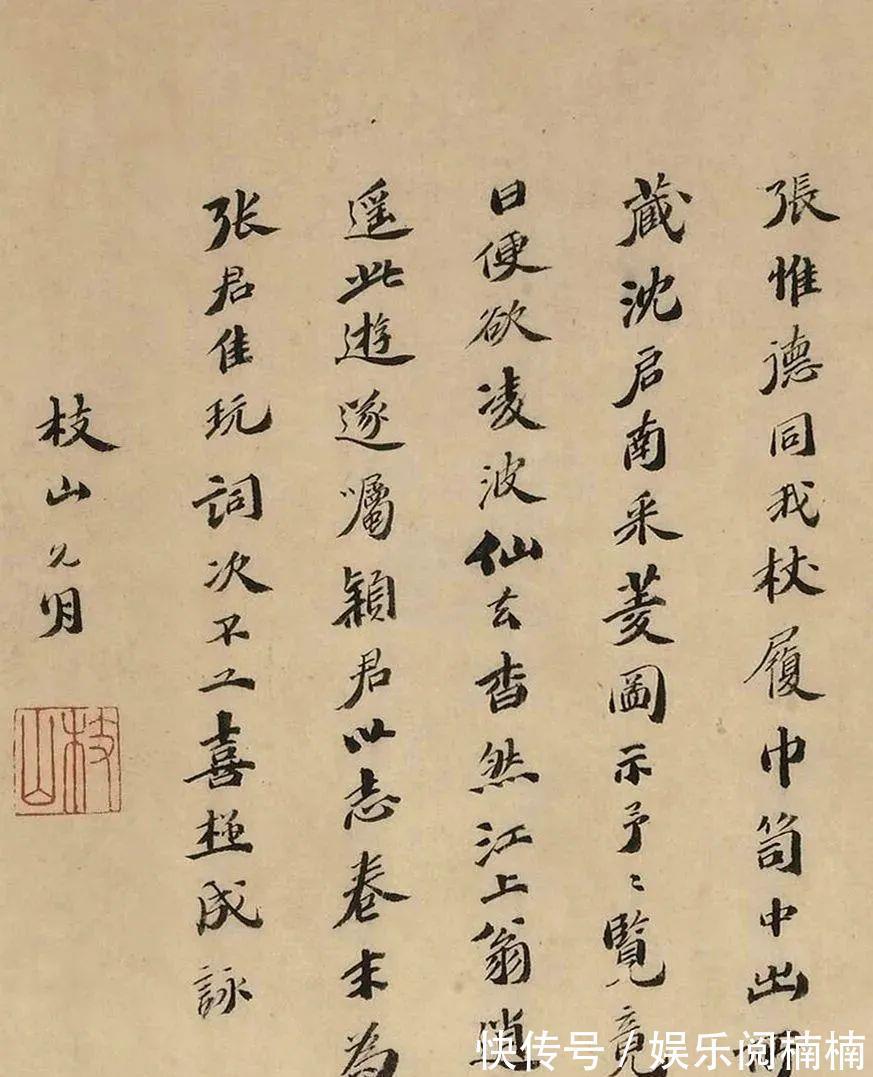 張惟德同我杖履巾笥中出所
藏沈启南采菱圖示予〻覽竟
日便欲凌波仙去杳然江上翁逍
遥此遊遂囑穎君以志卷末為
张君佳玩詞次不工喜極成詠
枝山允明
枝山
快传号/娱乐阅楠楠